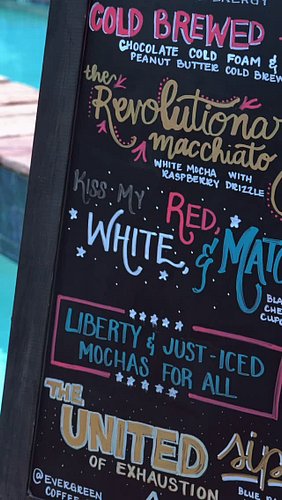 ENERGY
COLD BREWED
CHOCOLATE COLD FOAM &
PEANUT BUTTER COLD BREW
the
Revolutiona
macchiato
WHITE MOCHA WITH
RASPBERRY DRIZZLE
KISS MY
RED,
WHITE, & MATC
BLA
CHE
CUPC
LIBERTY & JUST-ICED
MOCHAS FOR ALL
THE
UNITED sip
OF EXHAUSTION
BLUE RA
@EVERGREEN
COFFEE